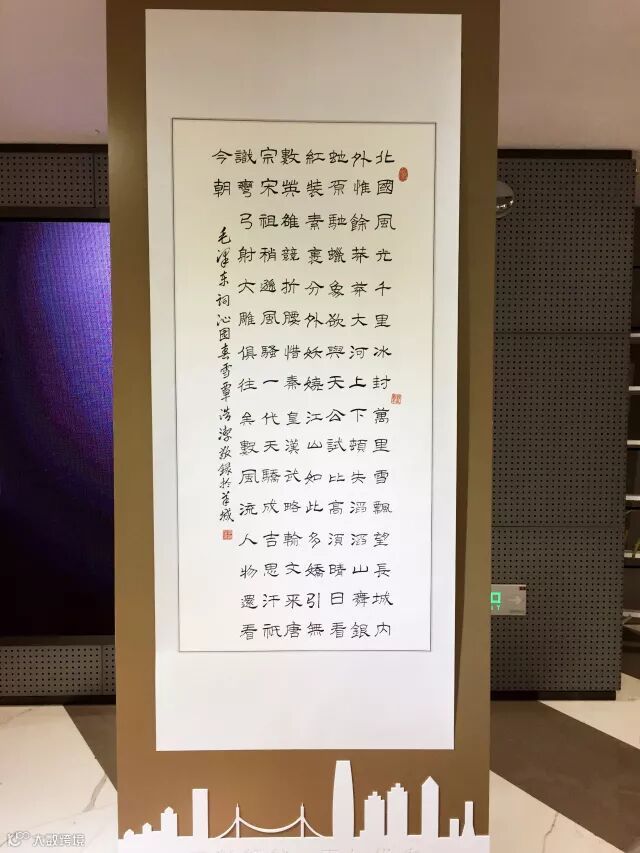 北國風光千里冰封萬里雪飄望長城內
外惟餘莽莽大河上下頓失滔滔山舞銀
虵原馳蠟象欲與天公試比高須晴日看
紅裝素裹分外妖嬈江山如此多嬌引無
數英雄競折腰惜秦皇漢武略輸文采唐
宗宋祖稍遜風騷一代天驕成吉思汗祇
識彎弓射大雕俱往矣數風流人物還看
今朝
毛澤东词沁园春雪覃浩潔敬録於羊城
大数跨境